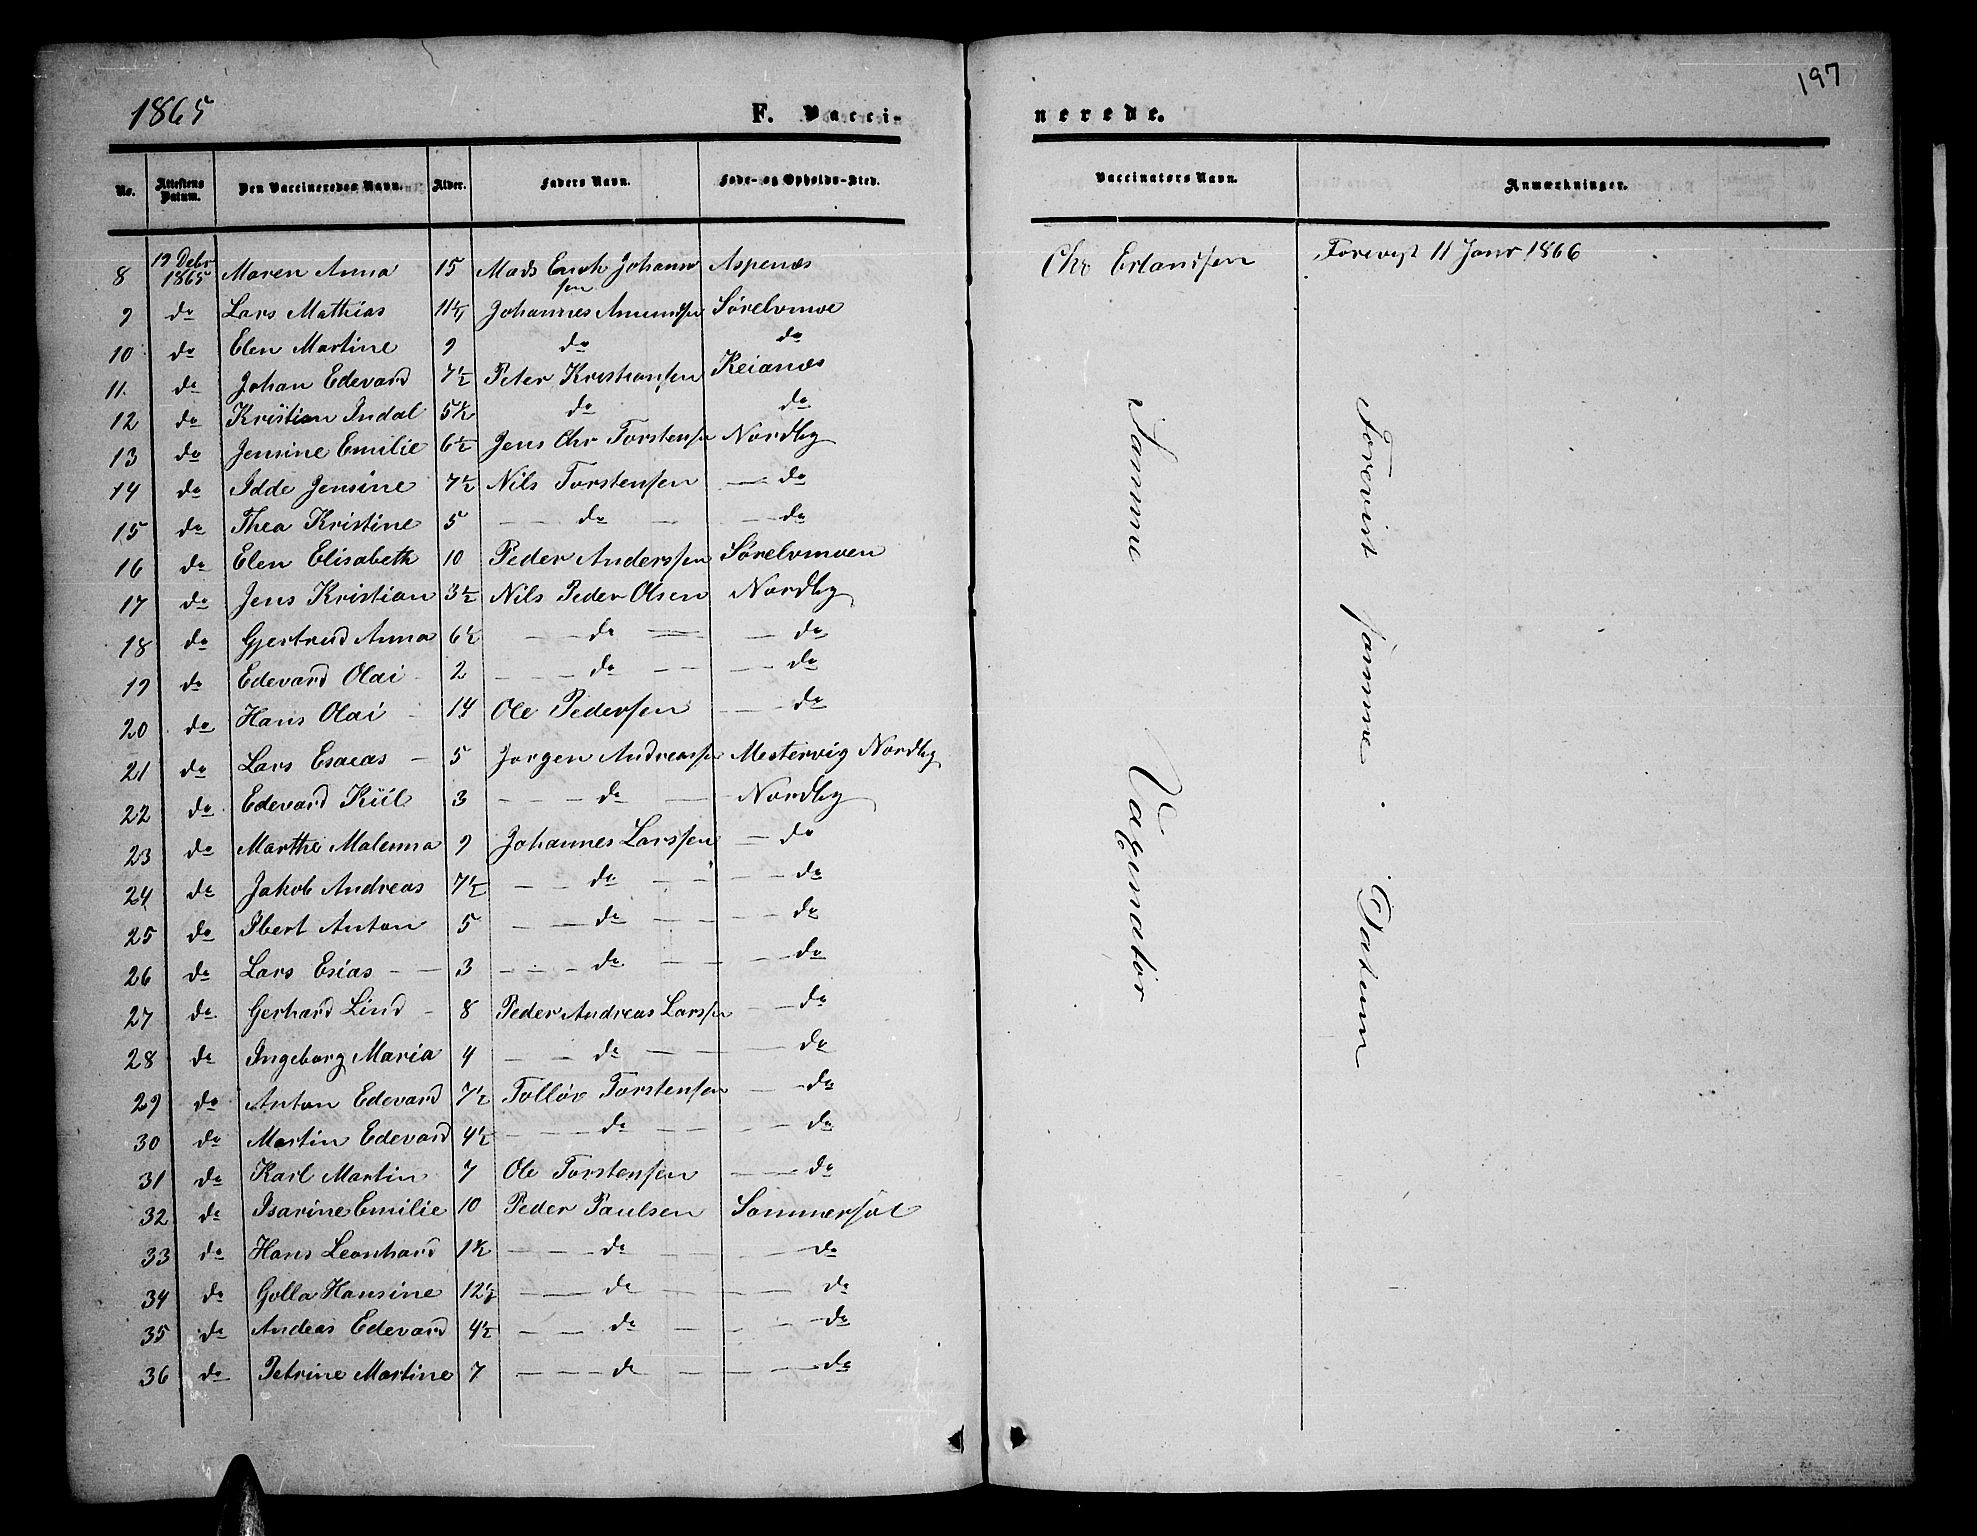 197
1865 F. Vaccinerede.
No. Attestens Datum. Den Vaccineredes Navn. Alder. Faders Navn. Føde- og Opholds-Sted. Vaccinatørs Navn. Anmærkninger.
8 19 Debr 1865 Maren Anna 15 Mads Enok Johannsen Aspenæs Chr Erlandsen Forevist 11 Janr 1866
9 do Lars Mathias 11½ Johannes Amundsen Sørelvmoe
10 do Elen Martine 9 do do
11. do Johan Edevard 7½ Peter Kristiansen Keianæs
12 do Kristian Indal 5½ do do
13 do Jensine Emilie 6½ Jens Chr Torstensen Nordby
14 do Idde Jensine 7½ Nils Torstensen — do
15 do Thea Kristine 5 — do — — do
16 do Elen Elisabeth 10 Peder Anderssen Sørelvmoen
17 do Jens Kristian 3½ Nils Peder Olsen Nordby
18 do Gjertrud Anna 6½ — do — — do
19 do Edevard Olai 2 — do — — do
20 do Hans Olai 14 Ole Pedersen — do
21 do Lars Esaias 5 Jørgen Andreassen Mestervig Nordby
22 do Edevard Kiil 3 — do — Nordby
23 do Marthe Malenna 9 Johannes Larssen — do
24 do Jakob Andreas 7½ — do — — do
25 do Ibert Anton 5 — do — — do
26 do Lars Esias 3 — do — — do
27 do Gerhard Lind 8 Peder Andreas Larssen — do
28 do Ingeborg Maria 4 — do — — do
29 do Anton Edevard 7½ Folløv Torstensen — do
30 do Martin Edevard 4½ — do — — do
31 do Karl Martin 7 Ole Torstensen — do
32 do Isarine Emilie 10 Peder Paulsen Sommersæt
33 do Hans Leonhard 1½ — do — — do
34 do Golla Hansine 12½ — do — — do
35 do Andeas Edevard 4½ — do — — do
36 do Petrine Martine 7 — do — — do
Samme Vaxinatør
Forevist samme Datum